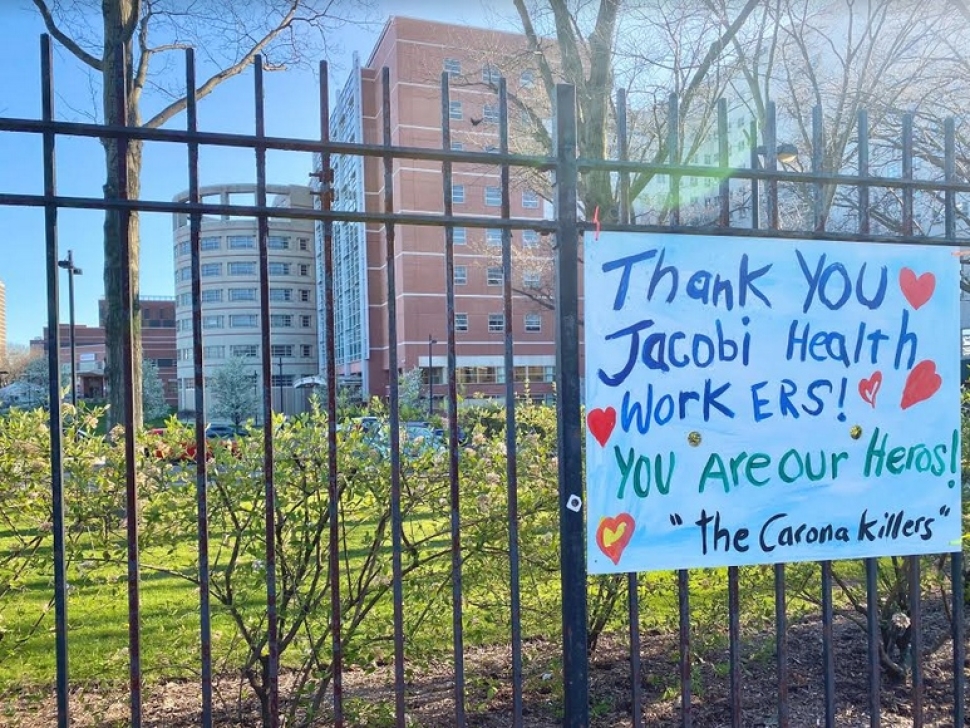 Thank YOU
Jacobi Health
WorkERS!
YOU Are our Heros!
"the Carona killers"